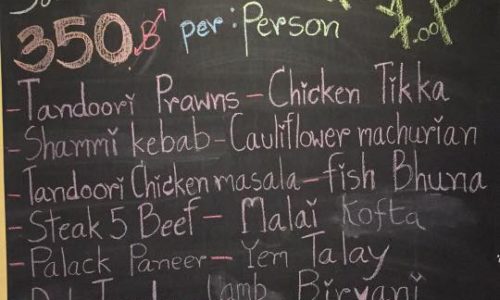 350฿ per: Person
-Tandoori Prawns - Chicken Tikka
-Shammi kebab - Cauliflower machurian
-Tandoori Chicken masala - fish Bhuna
-Steak 5 Beef - Malai Kofta
-Palack Paneer - Yem Talay
Lamb Biryani